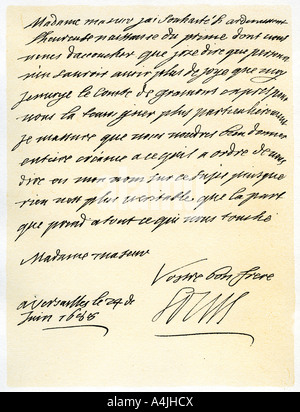 Madame ma seur j'ai souhaitté si ardemment
l'heureuse naissance du prince dont vous
venes d'accoucher que j'ose dire que personne
n'en sauroit avoir plus de joye que moy
J'envoye le Comte de gramont exprés pour
vous la temoigner plus particulièrement
Je m'assure que vous voudres bien donner
entiere créance a ce qu'il a ordre de vous
dire en mon nom sur ce sujet puisque
rien n'est plus veritable que la part
que je prend a tout ce qui vous touche
Madame ma seur
Vostre bon frere
Louis
a Versailles le 24 de
Juin 1688
alamy
alamy
Image ID: A4JHCX
www.alamy.com